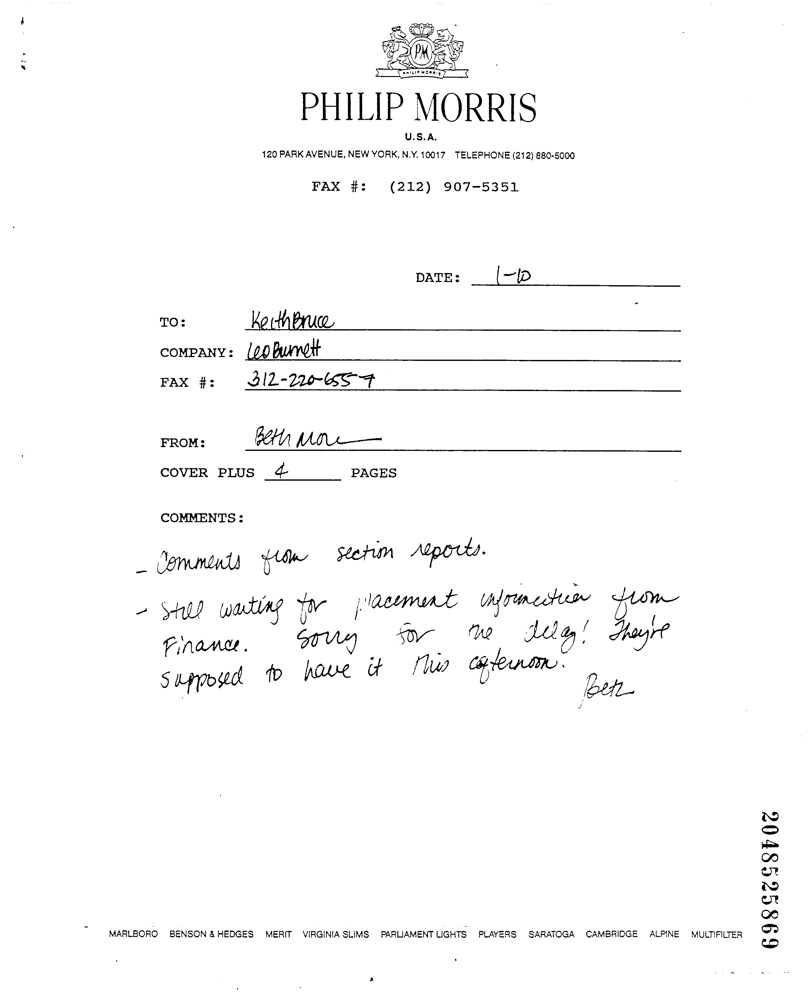 PM
PHILIP MORRIS
PHILIP MORRIS
U.S.A.
120 PARK AVENUE, NEW YORK, N.Y. 10017 TELEPHONE (212) 880-5000
FAX #: (212) 907-5351
DATE: 1-10
TO: Keith Bruce
COMPANY: Leo Burnett
FAX #: 312-220-6557
FROM: Beth
COVER PLUS 4 PAGES
COMMENTS:
- Comments from section reports.
- Still waiting for placement information from
Finance. Sorry for the delay! They're
supposed to have it this afternoon.
Beth
2048525869
MARLBORO BENSON & HEDGES MERIT VIRGINIA SLIMS PARLIAMENT LIGHTS PLAYERS SARATOGA CAMBRIDGE ALPINE MULTIFILTER